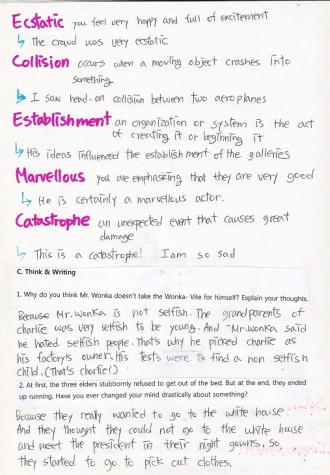 Ecstatic you feel very happy and full of excitement
↳ The crowd was very ecstatic
Collision occurs when a moving object crashes into
something
↳ I saw head-on collision between two aeroplanes
Establishment an organization or system is the act
of creating it or beginning it
↳ His ideas influenced the establishment of the galleries
Marvellous you are emphasizing that they are very good
↳ He is certainly a marvellous actor.
Catastrophe an unexpected event that causes great
damage
↳ This is a catastrophe! I am so sad
C. Think & Writing
1. Why do you think Mr. Wonka doesn't take the Wonka- Vite for himself? Explain your thoughts.
Because Mr.wonka is not selfish. The grandparents of
charlie was very selfish to be young. And Mr.wonka said
he hated selfish people. That's why he picked charlie as
his factory's owner. His tests were to find a non selfish
child. (That's charlie!)
2. At first, the three elders stubbornly refused to get out of the bed. But at the end, they ended
up running. Have you ever changed your mind drastically about something?
Because they really wanted to go to the white house
And they thought they could not go to the white house
and meet the president in their night gowns. So
they started to go to pick out clothes.